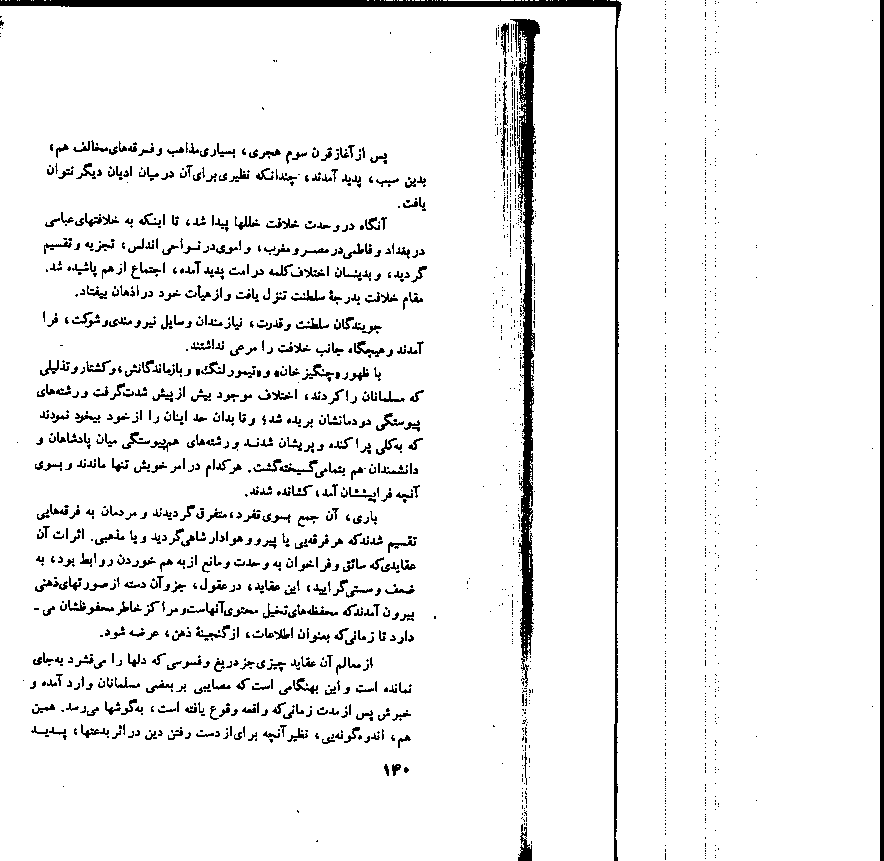 پس از آغاز قرن سوم هجری، بسیاری مذاهب و فرقه‌های مخالف هم،
بدین سبب، پدید آمدند، چندانکه نظیری برای آن در میان ادیان دیگر نتوان
یافت.
آنگاه در وحدت خلافت خللها پیدا شد، تا اینکه به خلافتهای عباسی
در بغداد و فاطمی در مصر و مغرب، و اموی در نواحی اندلس، تجزیه و تقسیم
گردید، و بدینسان اختلاف کلمه در امت پدید آمده، اجتماع از هم پاشیده شد.
مقام خلافت بدرجهٔ سلطنت تنزل یافت و از هیأت خود در اذهان بیفتاد.
جویندگان سلطنت و قدرت، نیازمندان وسایل نیرومندی و شوکت، فرا
آمدند و هیچگاه جانب خلافت را مرعی نداشتند.
با ظهور «چنگیز خان» و «تیمور لنگ» و بازماندگانش، و کشتار و تذلیلی
که مسلمانان را کردند، اختلاف موجود بیش از پیش شدت گرفت و رشته‌های
پیوستگی دودمانشان بریده شد؛ و تا بدان حد اینان را از خود بیخود نمودند
که به‌کلی پراکنده و پریشان شدند و رشته‌های هم‌پیوستگی میان پادشاهان و
دانشمندان هم بتمامی گسیخته گشت. هر کدام در امر خویش تنها ماندند و بسوی
آنچه فراپیششان آمد، کشانده شدند.
باری، آن جمع بسوی تفرد، متفرق گردیدند و مردمان به فرقه‌هایی
تقسیم شدند که هر فرقه‌یی یا پیرو و هوادار شاهی گردید و یا مذهبی. اثرات آن
عقایدی که سائق و فراخوان به وحدت و مانع از به هم خوردن روابط بود، به
ضعف و سستی گرایید، این عقاید، در عقول، جزو آن دسته از صورتهای ذهنی
بیرون آمدند که محفظه‌های تخیل محتوی آنهاست و مراکز خاطر محفوظشان می‌ـ
دارد تا زمانی که بعنوان اطلاعات، از گنجینهٔ ذهن، عرضه شود.
از معالم آن عقاید چیزی جز دریغ و فسوسی که دلها را می‌فشرد به‌جای
نمانده است و این بهنگامی است که مصایبی بر بعضی مسلمانان وارد آمده و
خبرش پس از مدت زمانی که واقعه وقوع یافته است، به‌گوشها می‌رسد. همین
هم، اندوه‌گونه‌یی، نظیر آنچه برای از دست رفتن دین در اثر بدعتها، پدید
۱۴۰